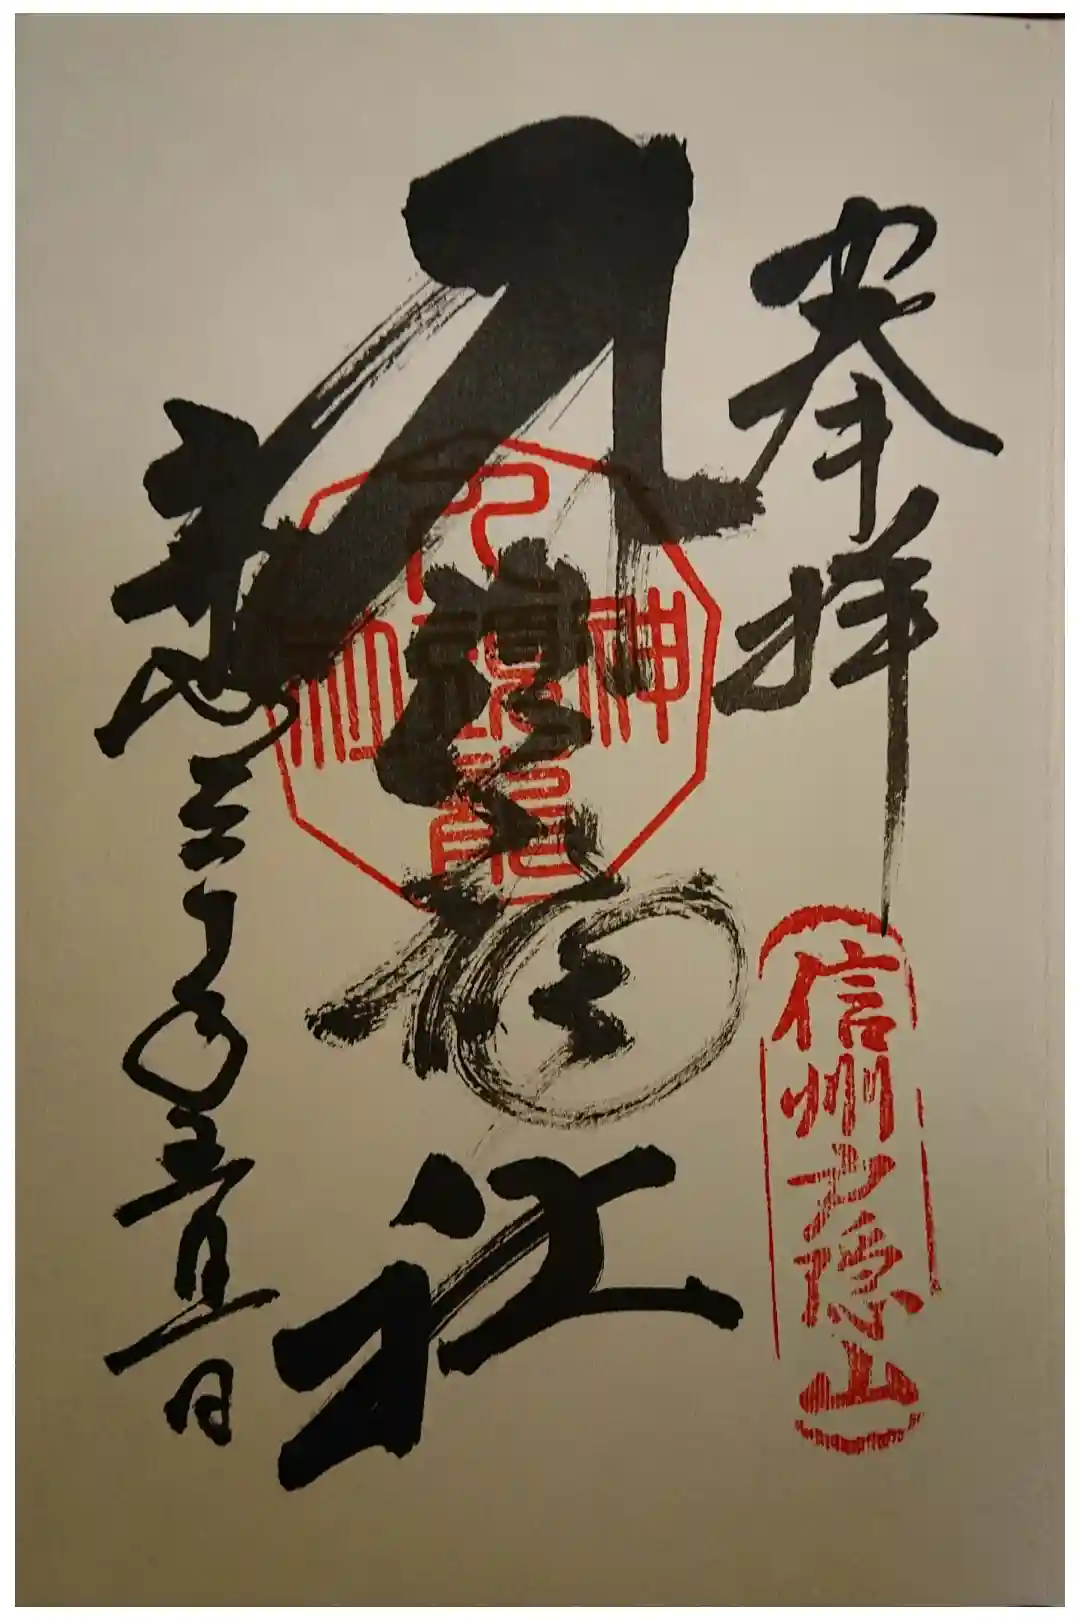 奉拝
信州戸隠山
九頭龍社
九頭龍神社
平成三十年五月一日